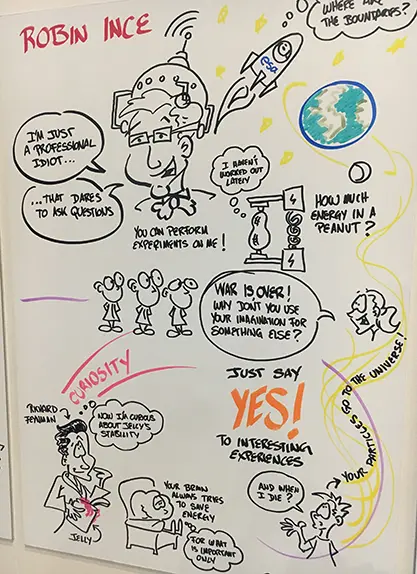 ROBIN INCE
WHERE ARE
THE BOUNTARIES?
esa
I'M JUST
A PROFESSIONAL
IDIOT...
...THAT DARES
TO ASK QUESTIONS
YOU CAN PERFORM
EXPERIMENTS ON ME!
I HAVEN'T
WORKED OUT
LATELY
HOW MUCH
ENERGY IN A
PEANUT?
WAR IS OVER!
WHY DON'T YOU USE
YOUR IMAGINATION FOR
SOMETHING ELSE?
CURIOSITY
RICHARD
FEYNMAN
NOW I'M CURIOUS
ABOUT JELLY'S
STABILITY
JELLY
YOUR BRAIN
ALWAYS TRIES
TO SAVE
ENERGY
FOR WHAT
IS IMPORTANT
ONLY
JUST SAY
YES!
TO INTERESTING
EXPERIENCES
AND WHEN
I DIE?
YOUR PARTICLES GO TO THE UNIVERSE!